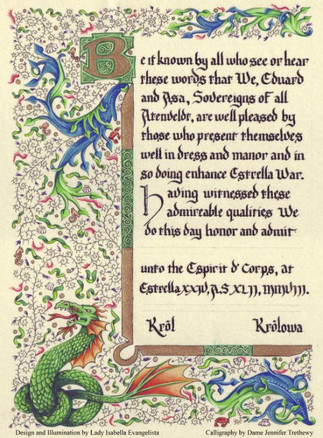 Be it known by all who see or hear
these words that We, Eduard
and Asa, Sovereigns of all
Atenveldt, are well pleased by
those who present themselves
well in dress and manor and in
so doing enhance Estrella War.
Having witnessed these
admireable qualities We
do this day honor and admit
unto the Espirit d' Corps, at
Estrella XXIV, A.S. XLII, MMVIII.
Król Królowa
Design and Illumination by Lady Isabella Evangelista Calligraphy by Dame Jennifer Trethewy